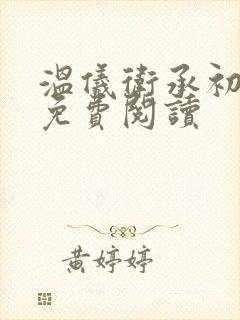 溫儀衛承初
免費閱讀
黃婷婷